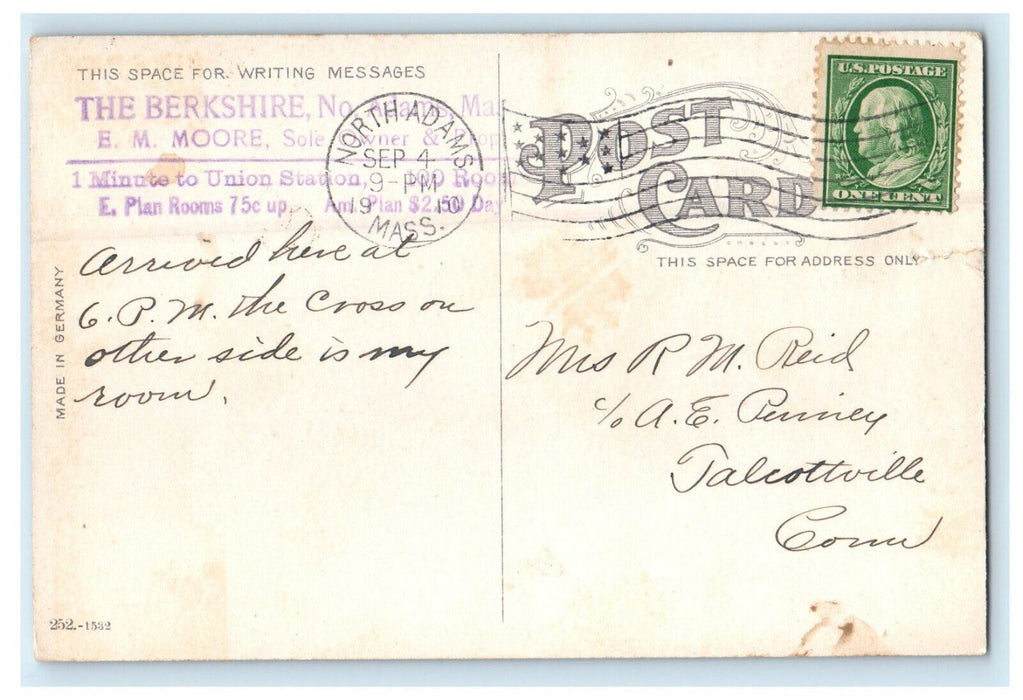 THIS SPACE FOR WRITING MESSAGES
THE BERKSHIRE, No. Adams, Ma
E. M. MOORE, Sole Owner & Prop
1 Minute to Union Station, 100 Roo
E. Plan Rooms 75c up Am. Plan $2.50 Day
NORTH ADAMS
SEP 4
9-PM
1910
MASS.
Arrived here at
6. P. M. the Cross on
other side is my
room.
MADE IN GERMANY
252.-1532
POST
CARD
U.S. POSTAGE
ONE CENT
THIS SPACE FOR ADDRESS ONLY
Mrs R M. Reid
c/o A. E. Penney
Talcottville
Conn